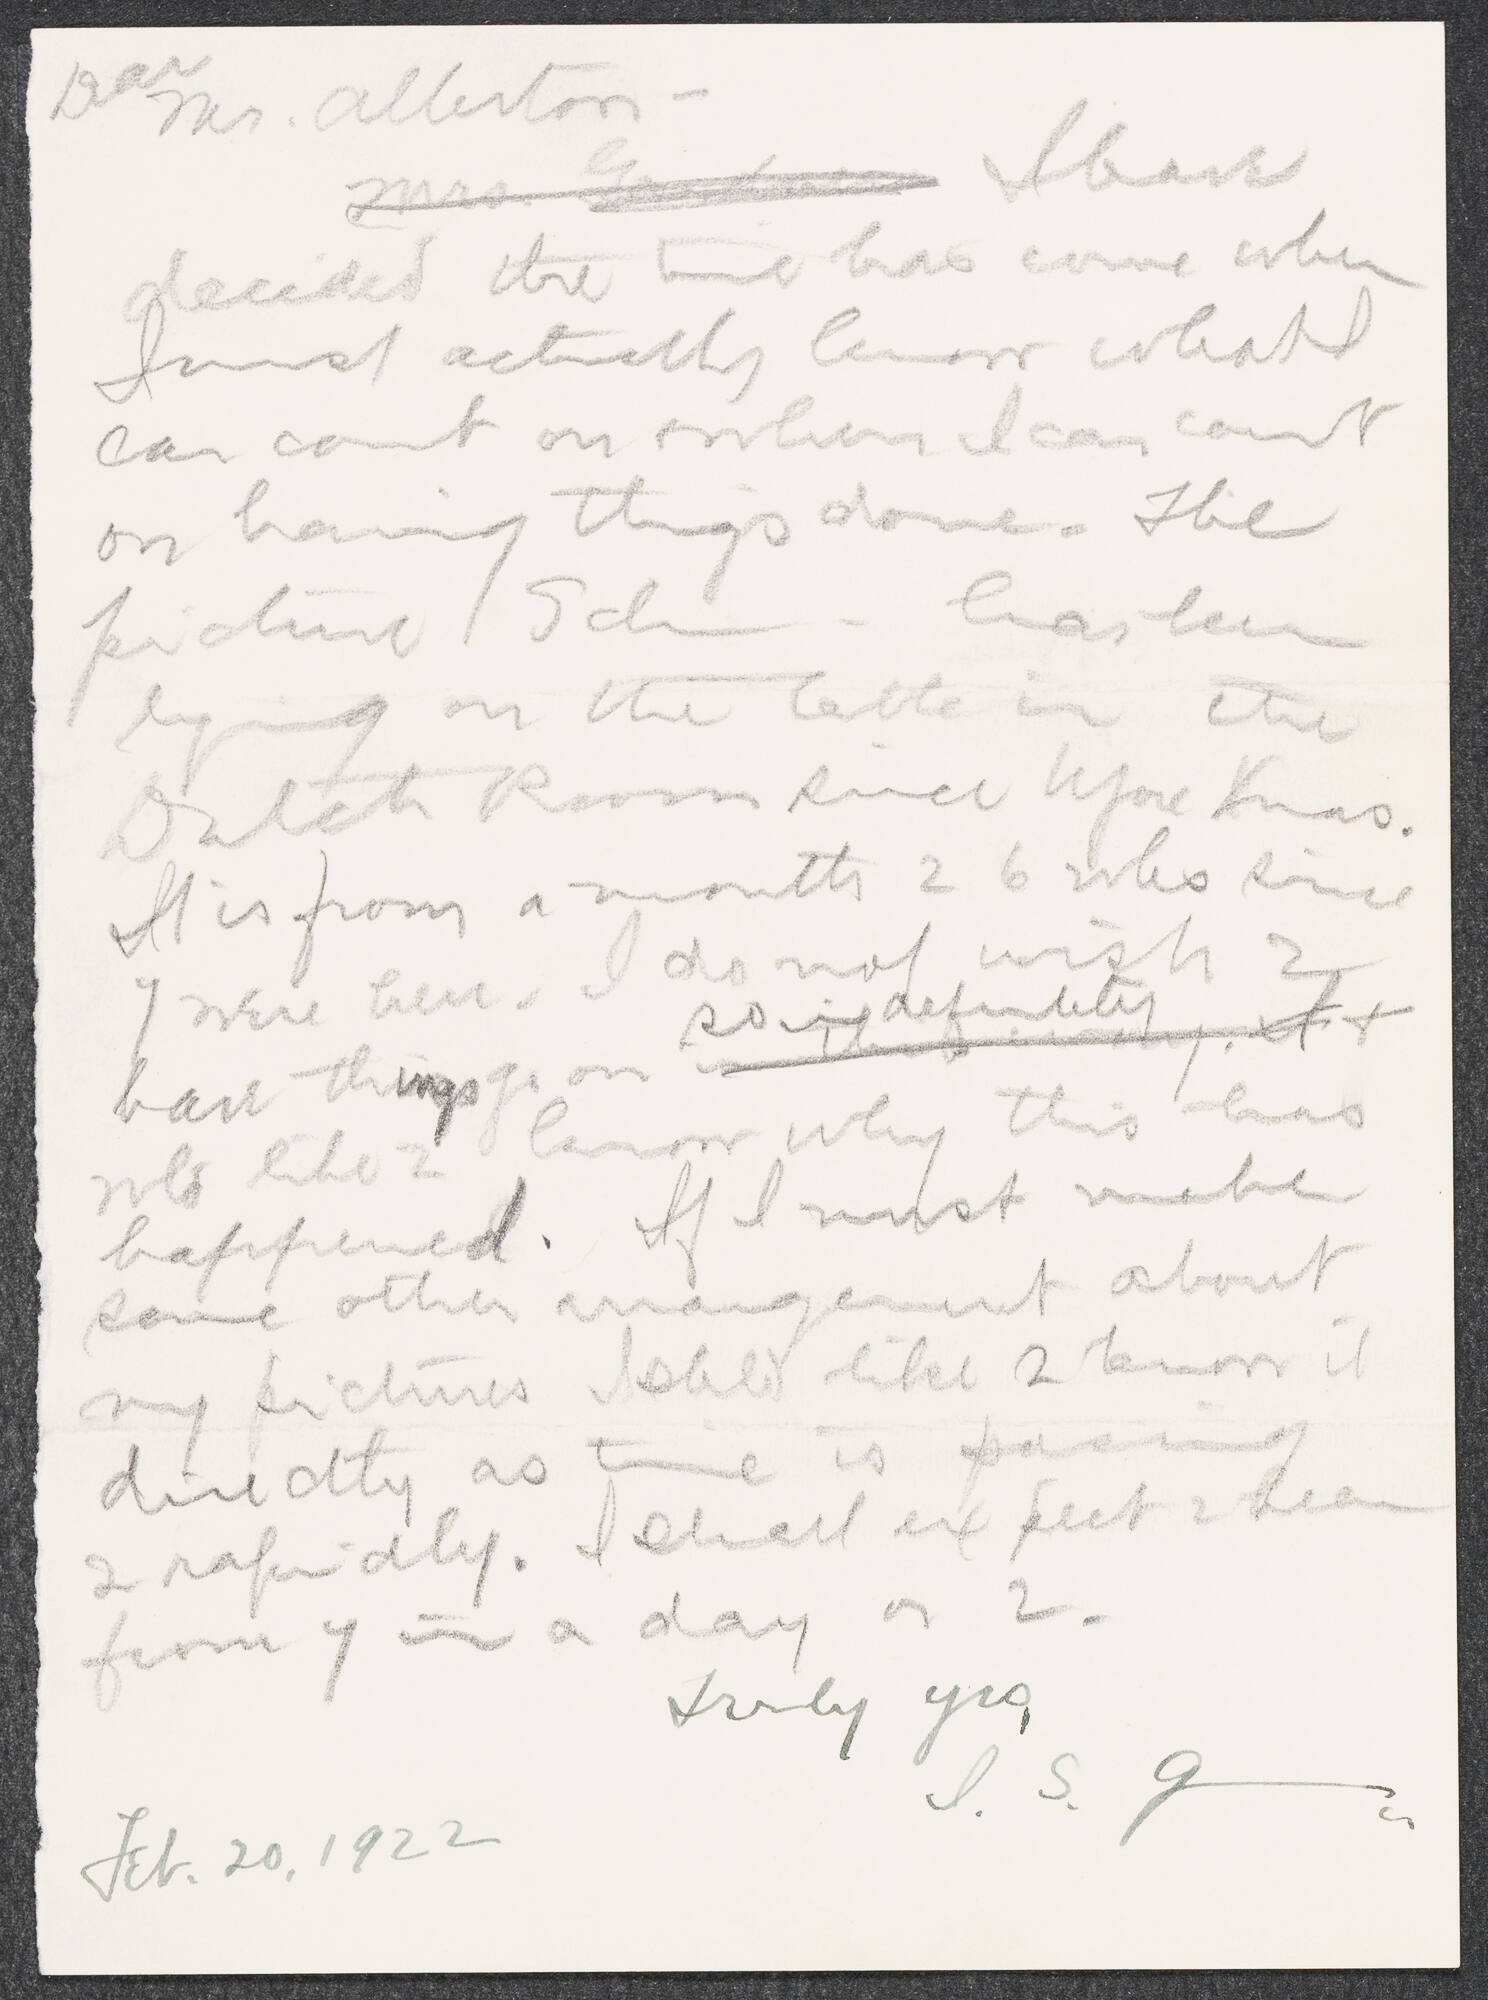 Dear
Mr. Allerton -
Mrs. I have
decided the time has come when
I must actually know what I
can count on + when I can count
on having things done. The
picture / Sch - has been
lying on the table in the
Dutch Room since before Xmas.
It is from a month 2 6 wks since
y were here. I do not wish 2
so indefinitely
have things go on +
wld like 2 know why this has
happened. If I must make
some other arrangement about
my pictures I shld like 2 know it
directly as time is passing
2 rapidly. I shall expect 2 hear
from y in a day or 2.
Truly yrs,
I. S. G
Feb. 20, 1922